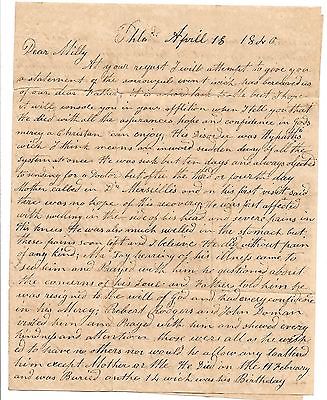 Phla. Aprill 18 1840.
Dear Milly
At your request I will attempt to give you
a statement of the sorrowfull event wich has bereaved us
of our dear Father, it is a hard task to me but I hope
it will console you in your affliction when I tell you that
he died with all the asurances hope and confidence in Gods
mercy a Christan can enjoy, His Disorder was
wich I think means an inward sudden decay of all the
system at once He was sick but ten days and allways objected
to sending for a Doctor but after the third or fourth day
Mother called in Dr. Marseilles and in his first visset said
there was no hope of his recovery, He was first affected
with swelling in the side of his head and severe pains in
the knee He was also much swelled in the stomack but
these pains soon left and I beleive He died without pain
of any kind; Mr Jay hearing of his illness came to
see him and Prayed with him he questioned about
the concerns of his Soul and Father told him he
was resigned to the will of God and had every confidence
in his Mercy; Robert Rodgers and John Doman
visited him and Prayed with him and shewed every
kindness and attention those were all as he wish
ed to have no others nor would he allow any to attend
him except Mother or Me He Died on the 11 February
and was Buried on the 14 wich was his Birthday